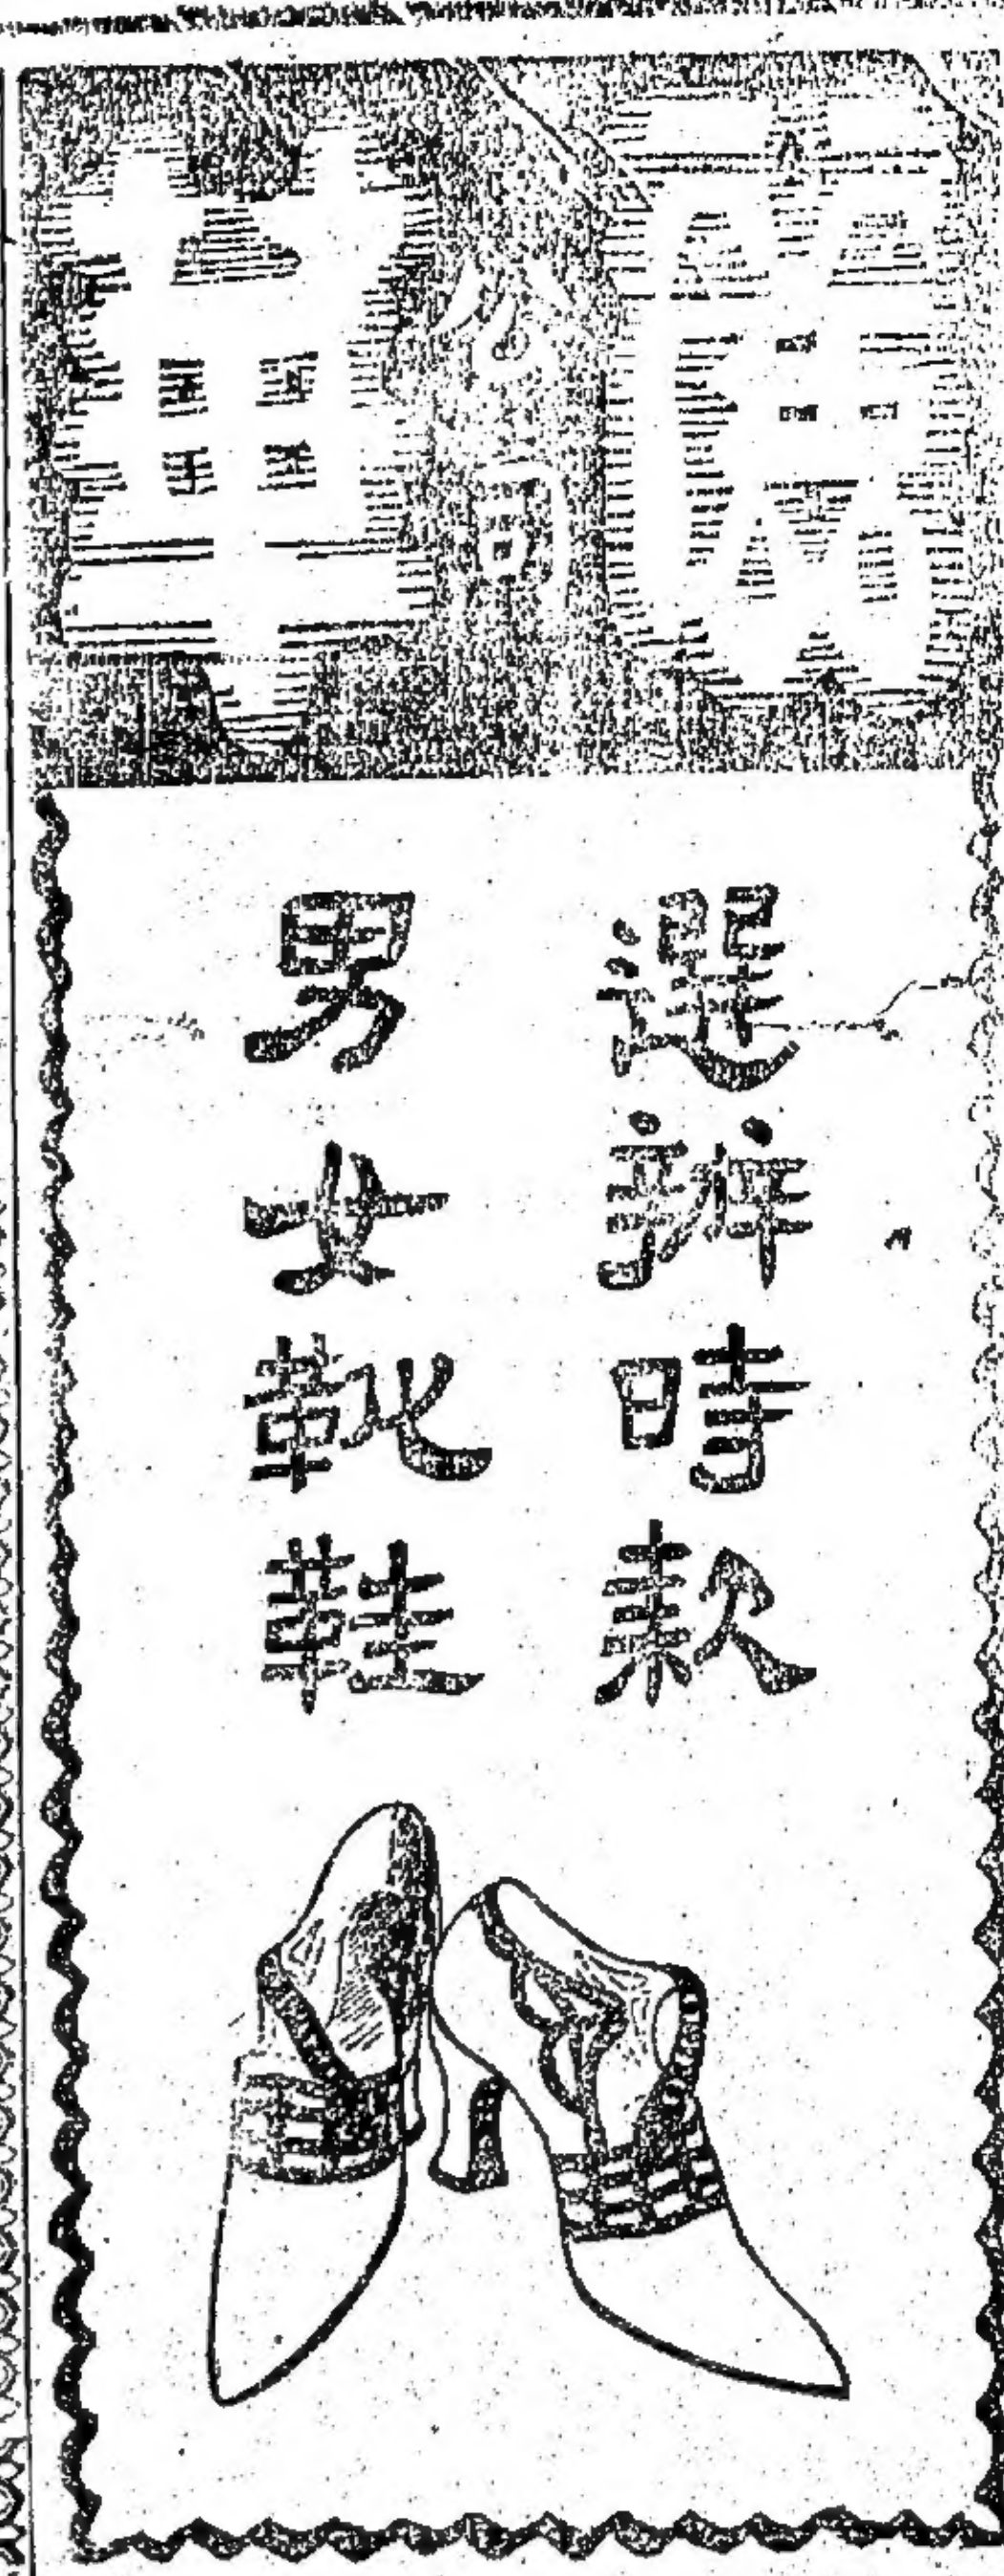 公司
選辦時款
男女靴鞋